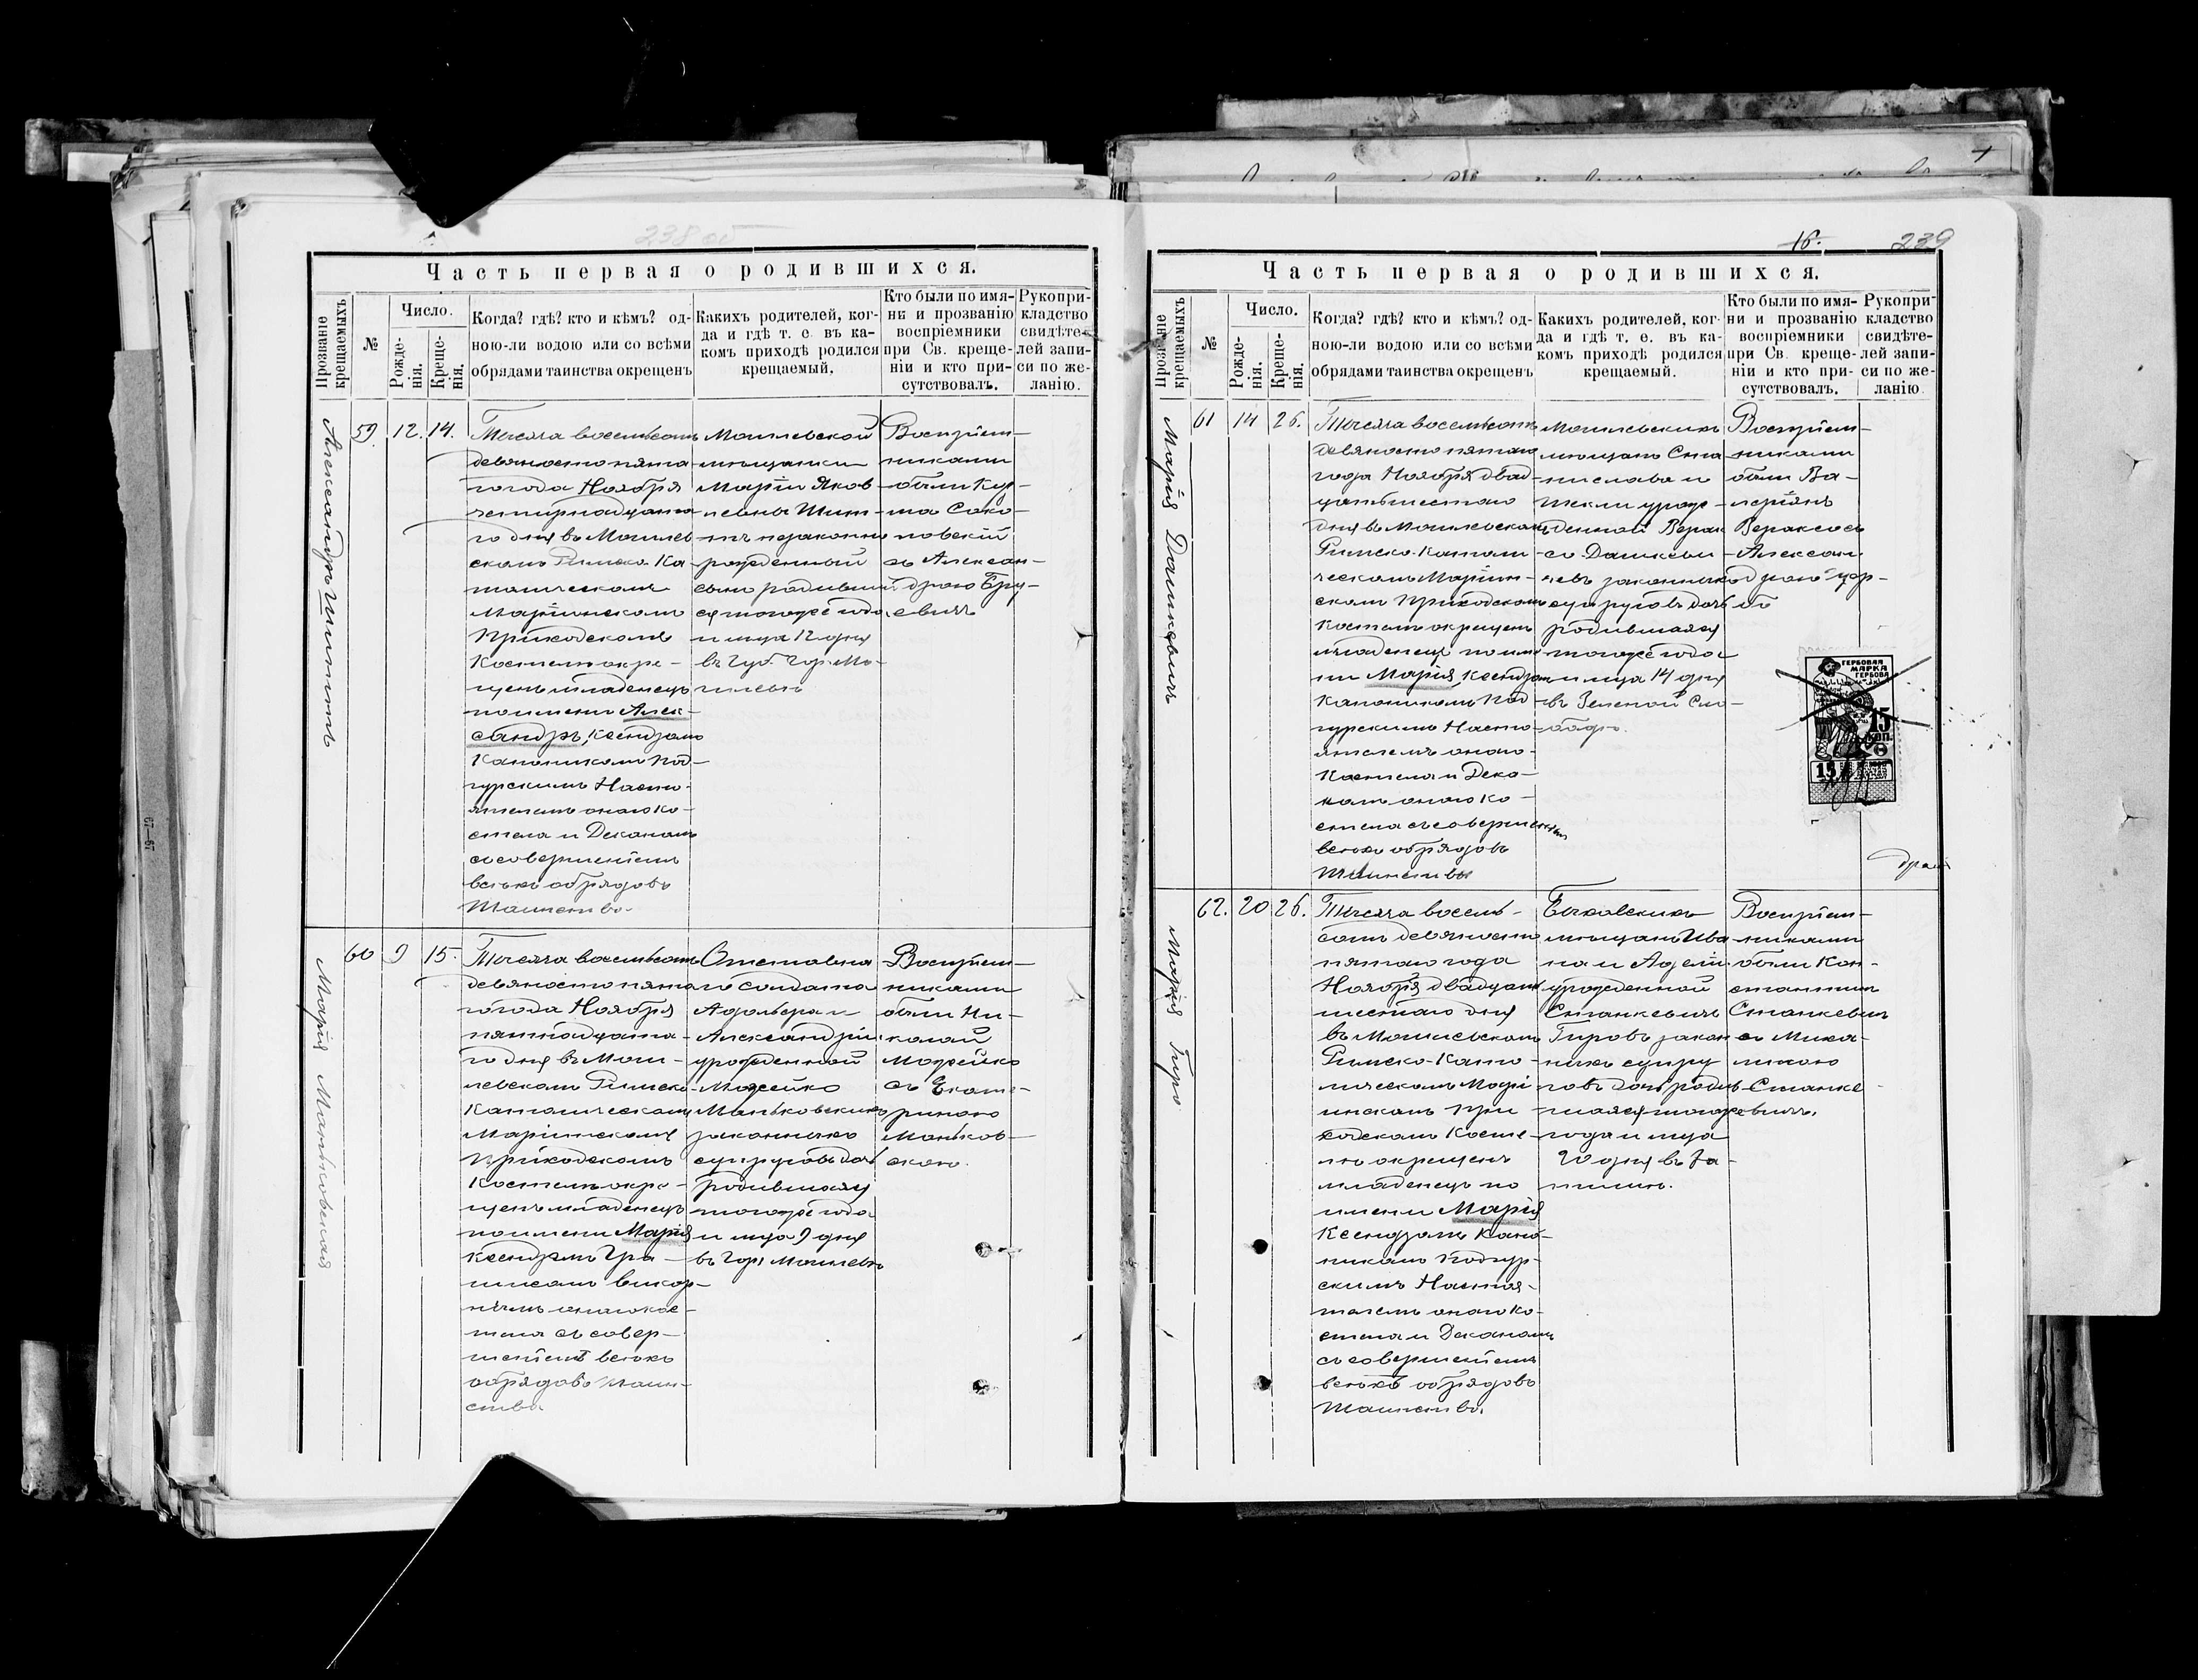 238 об
Часть первая о родившихся.
Прозваніе крещаемыхъ
№
Число.
Рожде-
нія.
Креще-
нія.
Когда? гдѣ? кто и кѣмъ? од-
ною-ли водою или со всѣми
обрядами таинства окрещенъ
Какихъ родителей, ког-
да и гдѣ т. е. въ ка-
комъ приходѣ родился
крещаемый.
Кто были по имя-
ни и прозванію
воспріемники
при Св. креще-
ніи и кто при-
сутствовалъ.
Рукопри-
кладство
свидѣте-
лей запи-
си по же-
ланію.
Александръ
59. 12. 14.
Тысяча восемьсотъ
девяносто пята
го года Ноября
четырнадцата
го дня въ Могилев
скомъ Римско Ка
толическомъ
Маріинскомъ
Приходскомъ
Костелѣ окре-
щенъ младенецъ
по имени Алек-
сандръ, Ксендзомъ
Каноникомъ Под-
гурскимъ Насто-
ятелемъ онаго Ко-
стела и Деканомъ
съ совершеніемъ
всѣхъ обрядовъ
Таинства.
Могилевской
мѣщанки
Маріи Яков
левны
незаконно
рожденный
сынъ родивший
ся тогоже года
и м-ца 12 дня
въ Губ. гор. Мо-
гилевѣ
Воспріем-
никами
были
Соко-
ловскій
съ Алексан-
дрою
Марія Маньковская
60 9 15.
Тысяча восемьсотъ
девяносто пята
го года Ноября
пятнадцата-
го дня въ Моги-
левскомъ Римско
Католическомъ
Маріинскомъ
Приходскомъ
Костелѣ окре-
щенъ младенецъ
по имени Марія
Ксендзомъ
викар-
нымъ онаго кос-
тела съ совер-
шеніемъ всѣхъ
обрядовъ Таин-
ства.
Отставна
го солдата
Адольфа и
Александры
урожденной
Можейко
Маньковскихъ
законныхъ
супруговъ дочь
родившаяся
тогоже года
и м-ца 9 дня
въ гор. Могилевѣ
Воспріем-
никами
были Ни-
колай
Можейко
съ Екате-
риною
Маньков-
скою.
16.
239
Часть первая о родившихся.
Прозваніе крещаемыхъ
№
Число.
Рожде-
нія.
Креще-
нія.
Когда? гдѣ? кто и кѣмъ? од-
ною-ли водою или со всѣми
обрядами таинства окрещенъ
Какихъ родителей, ког-
да и гдѣ т. е. въ ка-
комъ приходѣ родился
крещаемый.
Кто были по имя-
ни и прозванію
воспріемники
при Св. креще-
ніи и кто при-
сутствовалъ.
Рукопри-
кладство
свидѣте-
лей запи-
си по же-
ланію.
Марія Дашкевичъ
61 14 26.
Тысяча восемьсотъ
девяносто пятаго
года Ноября двад-
цать шестаго
дня въ Могилевскомъ
Римско-Католи
ческомъ Маріин-
скомъ Приходскомъ
Костелѣ окрещенъ
младенецъ по име
ни Марія, Ксендзомъ
Каноникомъ Под
гурскимъ Насто-
ятелемъ онаго
Костела и Дека-
номъ онаго Ко-
стела съ совершеніемъ
всѣхъ обрядовъ
Таинства
Могилевскихъ
мѣщанъ Ста
нислава и
Теклы урож-
денной
Дашкеви
чевъ законныхъ
супруговъ дочь
родившаяся
тогоже года
и м-ца 14 дня
въ Зеленой Сло-
бодѣ.
Воспріем-
никами
были Ва-
леріянъ
съ
Алексан
дрою
ГЕРБОВАЯ
МАРКА
15
КОП.
15
Марія Гиро
62. 20 26.
Тысяча восемь-
сотъ девяносто
пятаго года
Ноября двадцать
шестаго дня
въ Могилевскомъ
Римско-Като-
лическомъ Марі
инскомъ При
ходскомъ Косте
лѣ окрещенъ
младенецъ по
имени Марія
Ксендзомъ Кано-
никомъ Подгур-
скимъ Настоя-
телемъ онаго Ко-
стела и Деканомъ
съ совершеніемъ
всѣхъ обрядовъ
Таинства.
Быховскихъ
мѣщанъ Ива
на и Адели
урожденной
Станкевичъ
Гировъ закон
ныхъ супру
говъ дочь родив
шаяся тогоже
года и м-ца
20 дня въ
Воспріем-
никами
были Кон-
стантинъ
Станкевичъ
съ Миха-
линою
Станке-
вичъ.